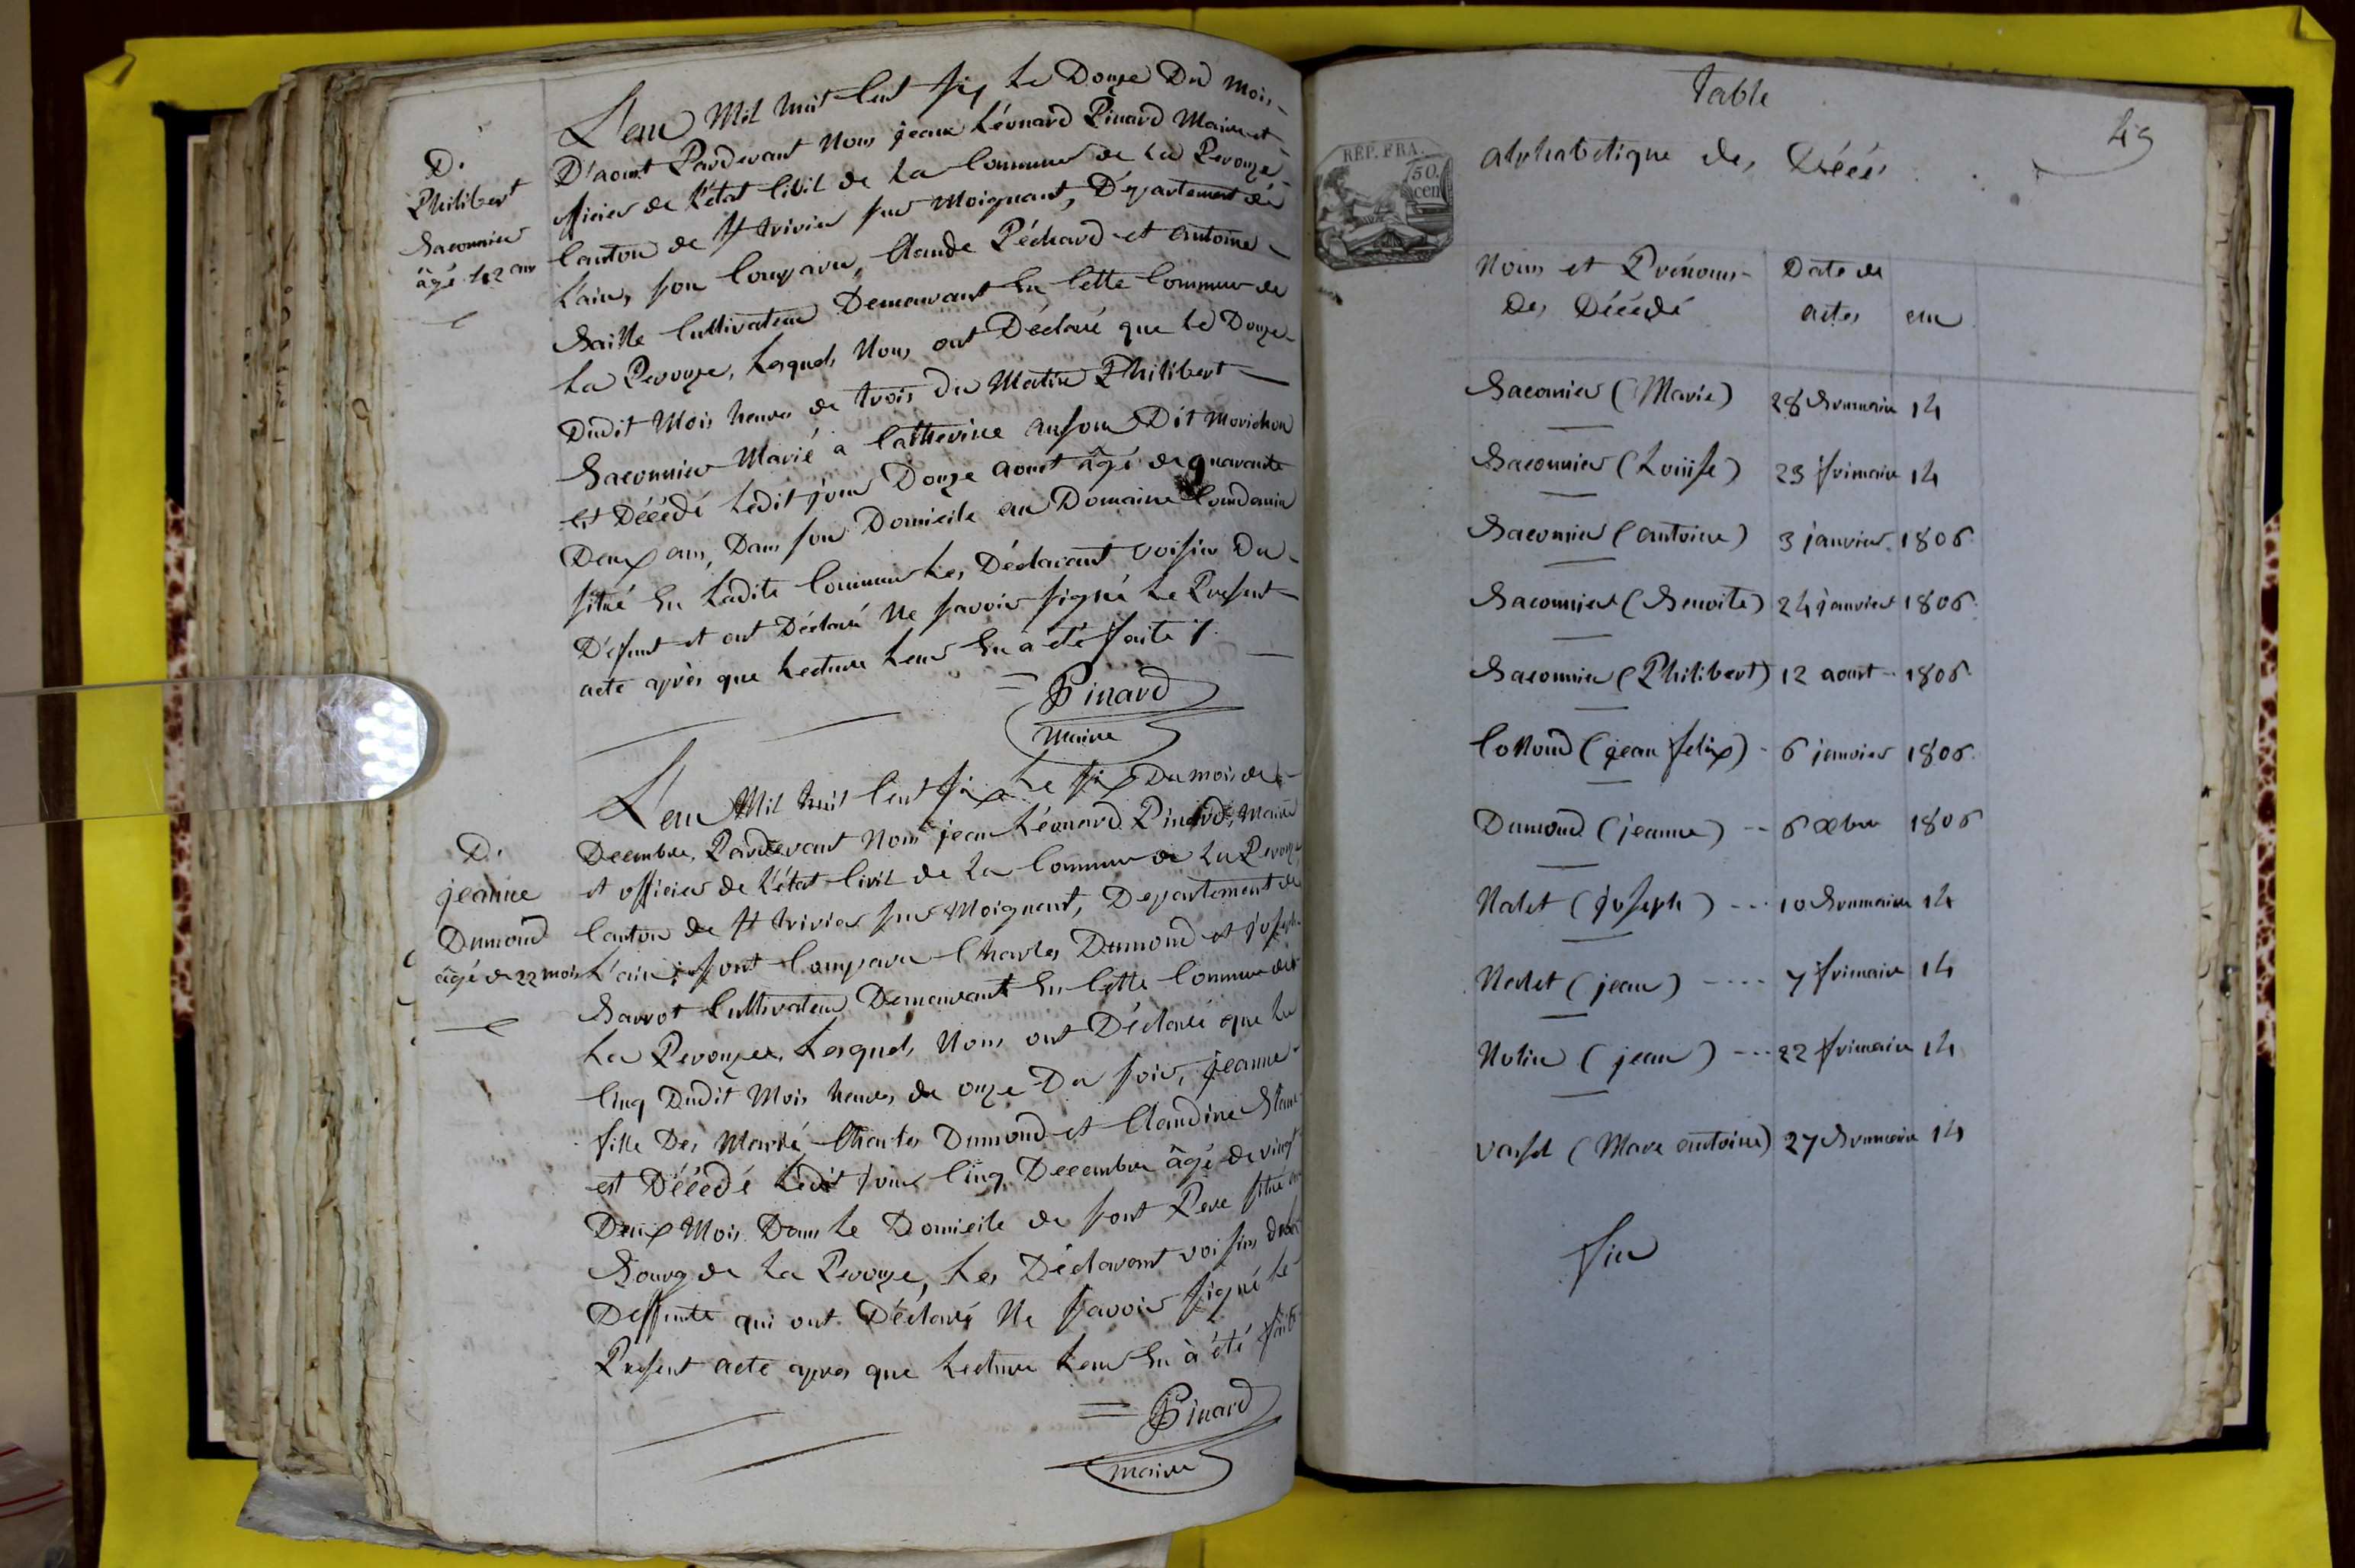 D.
Philibert
Baconnier
âgé 42 ans
L'an Mil huit Cent six le Douze Du mois
D'aoust Pardevant Nous jean Léonard Pinard Maire et
officier de l'état Civil de la Commune de La Perouze
Canton de St trivier sur Moignant, Département de
L'ain, son Comparu, Claude Péchard et antoine
Cultivateur Demeurant En Cette Commune de
La Perouze, Lesquels Nous ont Déclaré que le Douze
Dudit Mois heures de trois du Matin Philibert
Baconnier Marié a Catherine Dit Morichon
Est Décédé Ledit jour Douze aoust âgé de quarante
Deux ans, Dans son Domicile au Domaine
situé En Ladite Commune Les Déclarant voisin Du
Défunt et ont Déclaré Ne savoir signé Le Present
acte après que Lecture Leur En a été faite
Pinard
Maire
D.
jeanne
Dumond
âgé de 22 mois
L'an Mil huit Cent six Le six Du mois de
Decembre, Pardevant Nous jean Léonard Pinard, Maire
et officier de L'état Civil de La Commune de La Perouze
Canton de St trivier sur Moignant, Departement de
L'ain; sont Comparu Charles Dumond et joseph
Barrot Cultivateur Demeurant En Cette Commune de
La Perouze, Lesquels Nous ont Déclaré que Le
Cinq Dudit Mois heures de onze Du soir, jeanne
fille Des Marié Charles Dumond et Claudine
est Décédé Ledit jour Cinq Decembre âgé de vingt
Deux Mois Dans Le Domicile de sont Pere situé au
Bourg de La Perouze, Les Déclarant voisins de la
Deffunte qui ont Déclaré Ne savoir signé Le
Present acte apres que Lecture Leur En à été faite
Pinard
maire
Table
49
REP. FRA.
50.
cen
alphabetique des Décés
Noms et Prénoms Date de
Des Décédé actes an
Baconnier (Marie) 28 Brumaire 14
Baconnier (Louise) 23 frimaire 14
Baconnier (antoine) 3 janvier 1806
Baconnier (Benoite) 24 janvier 1806
Baconnier (Philibert) 12 aoust 1806
Collond (jean felix) 6 janvier 1806
Dumond (jeanne) 6 Xbre 1806
Nalet (joseph) 10 Brumaire 14
Nalet (jean) 7 frimaire 14
Nolin (jean) 22 frimaire 14
varset (Marc antoine) 27 Brumaire 14
fin